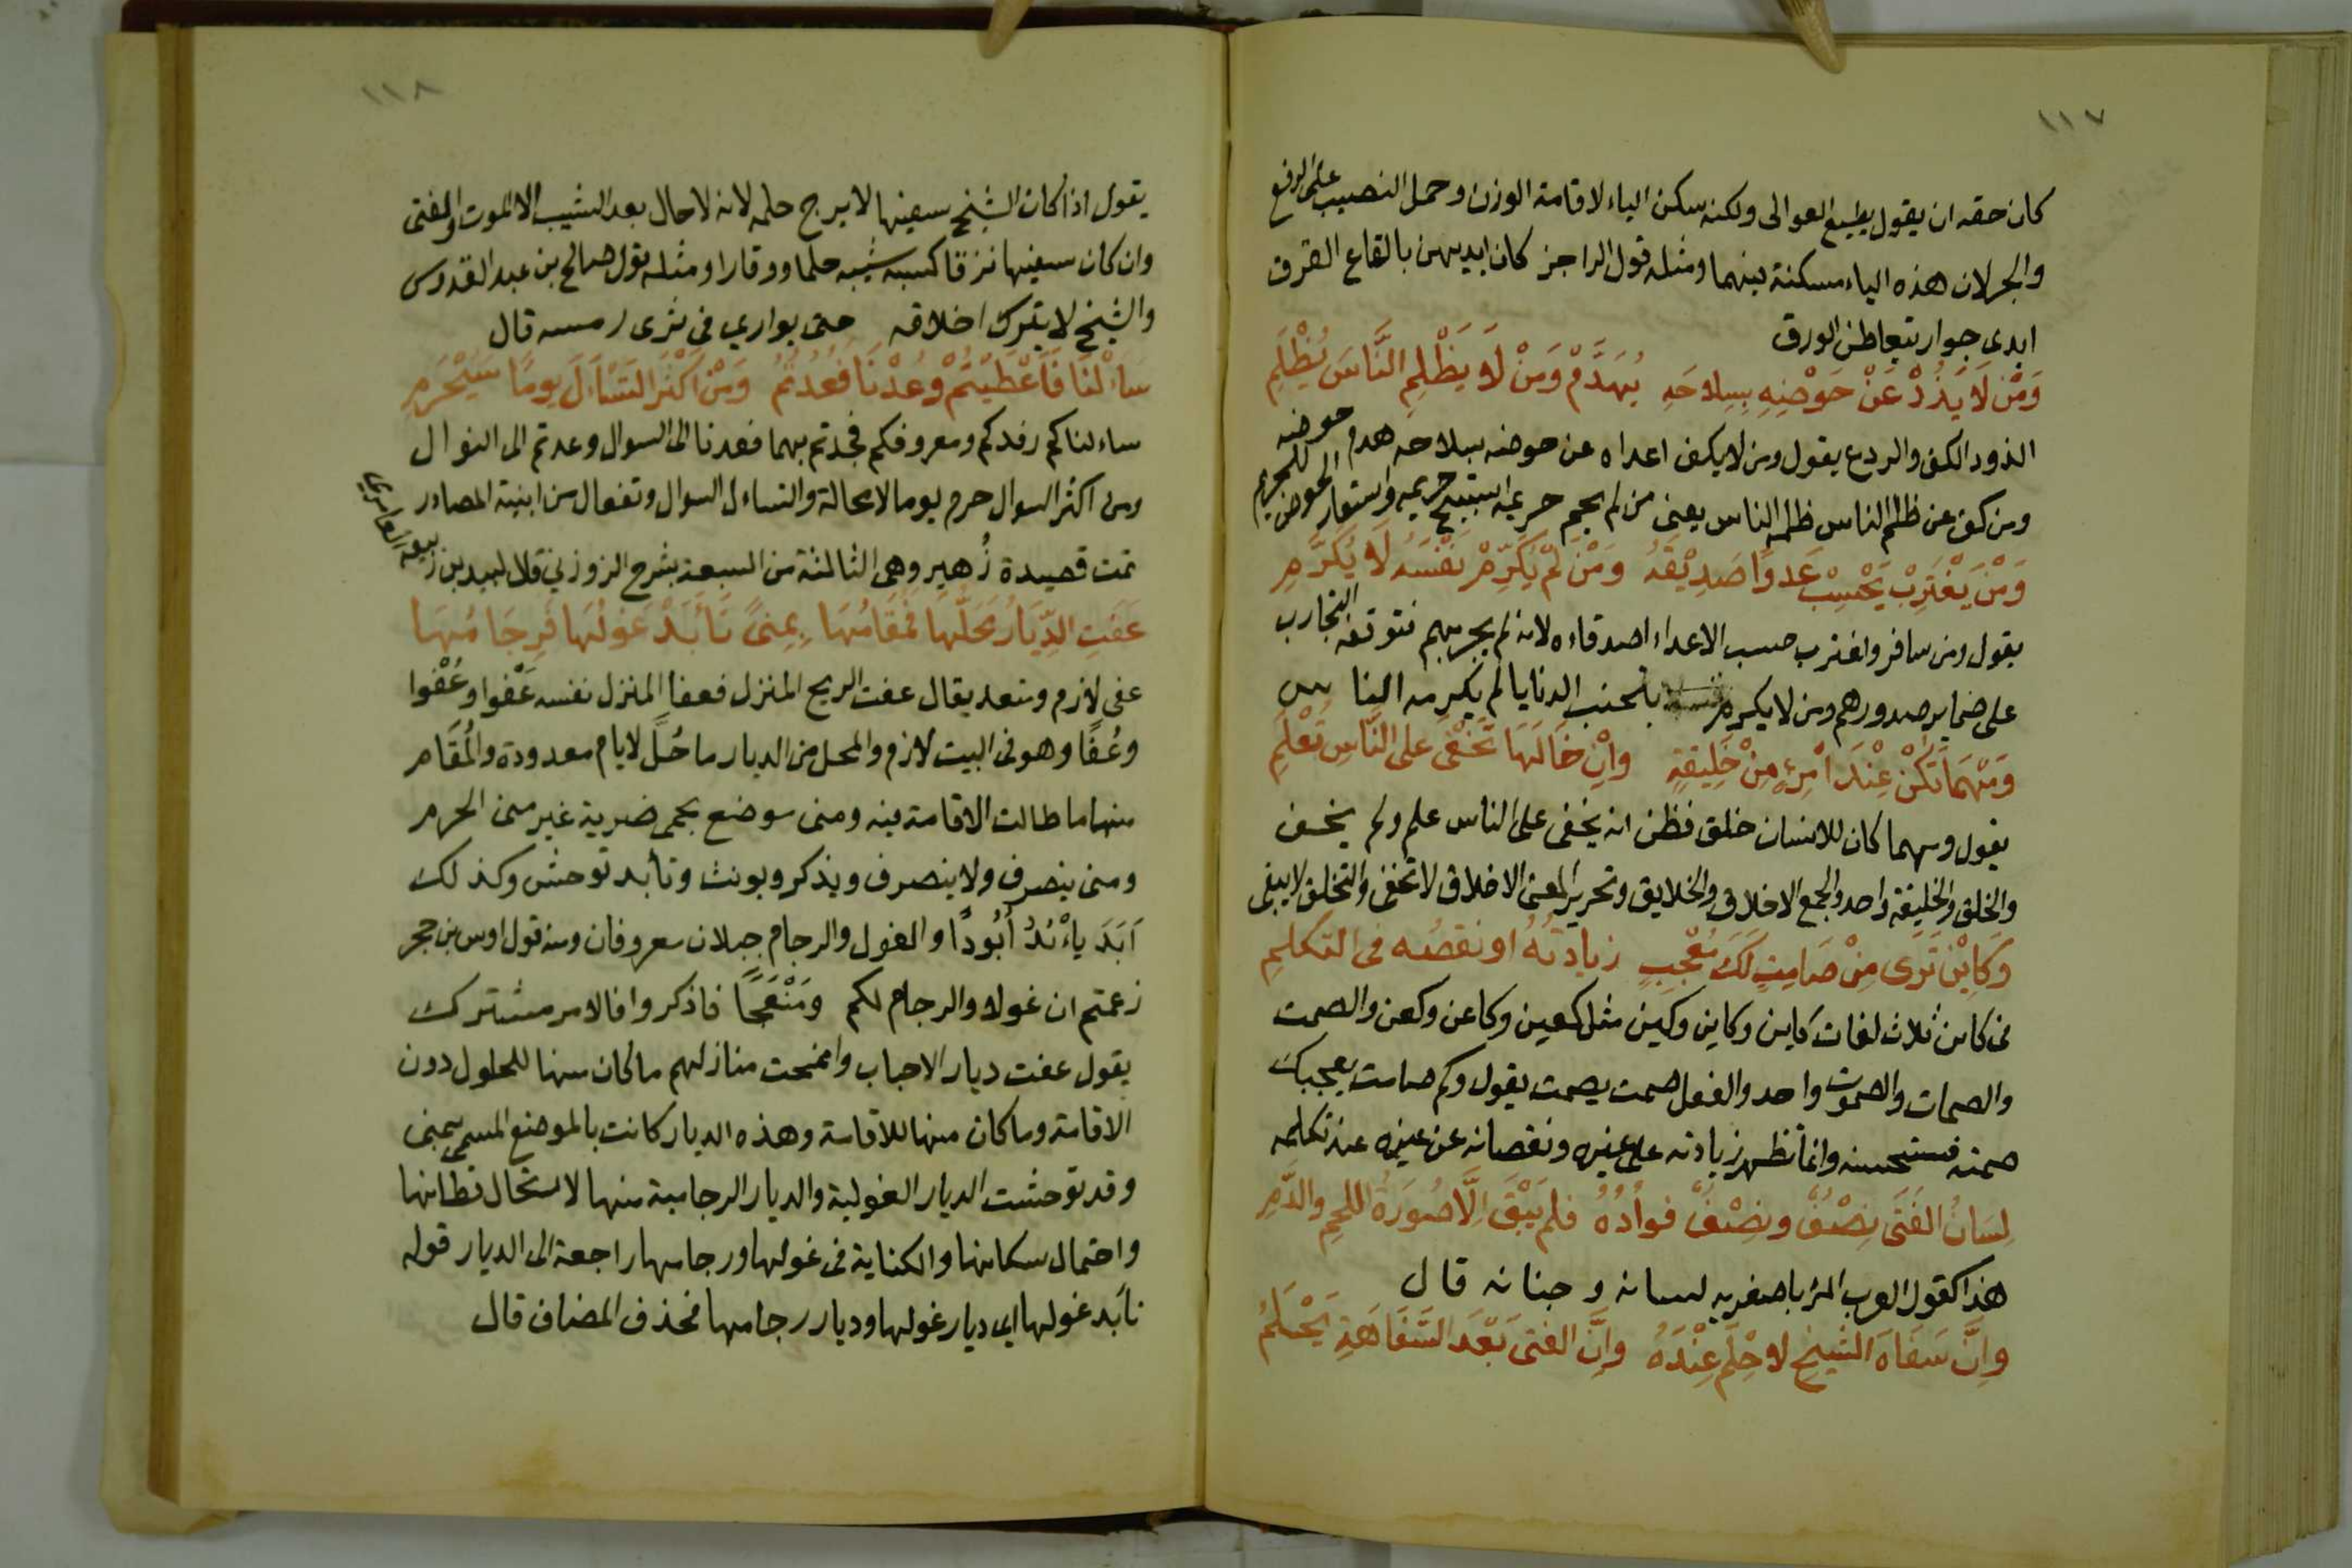 ١١٧
كان حقه ان يقول يطيع العوالى ولكنه سكن الياء لاقامة الوزن وحمل النصيب على الرفع
والجر لان هذه الياء مسكنة بينهما ومثله قول الراجز كان ايديهن بالقاع القرق
ايدى جوار يتعاطين الورق
وَمَنْ لَا يَذُدْ عَنْ حَوْضِهِ بِسِلاحَهِ يُهَدَّمْ وَمَنْ لَا يَظْلِمِ النَّاسَ يُظْلَمِ
الذود الكف والردع يقول ومن لا يكف اعداه عن حوضه بسلاحه هدم حوضه
ومن كف عن ظلم الناس ظلمه الناس يعنى من لم يحمِ حريمه استبيح حريمه واستعار الحوض للحريم
وَمَنْ يَغْتَرِبْ يَحْسِبْ عَدوًا صَدِيْقَهُ وَمَنْ لَمْ يُكَرِّمْ نَفْسَهُ لَا يُكَرَّمِ
يقول ومن سافر واغترب حسب الاعداء اصدقاءه لانه لم يجربهم فتوقفه التجارب
على ضماير صدورهم ومن لا يكرم نفسه بتجنب الدنايا لم يكرمه الناس
وَمَهْمَا تَكُنْ عِنْدَ امْرِءٍ مِنْ خَلِيقَةٍ وانْ خَالَهَا تَخْفَى على النَّاسِ تُعْلَمِ
يقول ومهما كان للانسان خلق فظن انه يخفى على الناس علم ولم يخف
والخلق والخليقة واحد والجمع الاخلاق والخلايق وتحرير المعنى الاخلاق لا تخفى والتخلق لا يبقى
وَكَايِنْ تَرَى مِنْ صَامِتٍ لَكَ مُعْجِبٍ زيادتُهُ او نقصُه فى التكلمِ
فى كاين ثلاث لغات كاين وكاين وكين مثل كعين وكاعن وكعن والصمت
والصمات والصموت واحد والفعل صمت يصمت يقول وكم صامت يعجبك
صمته فتستحسنه وانما تظهر زيادته على غيره ونقصانه عن غيره عند تكلمه
لِسَانُ الفَتَى نِصْفٌ ونِصْفٌ فوأدُهُ فلم يَبْقَ اِلَّا صُورَةُ اللحمِ والدَّمِ
هذا كقول العرب المرء باصغريه لسانه وجنانه قال
وانَّ سَفَاهَ الشَّيخِ لا حِلْمَ عِنْدَهُ وانَّ الفتىَ بَعْدَ السَّفَاهَةِ يَحْلُمُ
١١٨
يقول اذا كان الشيخ سفيها لا يرج حلمه لانه لا حال بعد الشيب الا الموت والفتى
وان كان سفيها نزقا كسبه شيبه حلما ووقارا ومثله قول صالح بن عبد القدوس
والشيخ لا يترك اخلاقه حتى يوارى فى ثرى رمسه قال
سَاءَلْنَا فَاَعْطَيْتُمْ وعُدْنَا فعُدْتُمُ وَمَنْ اَكْثَرَ التَّسْآلَ يومًا سَيُحْرَمِ
ساءلناكم رفدكم ومعروفكم فجدتم بهما فعدنا الى السوال وعدتم الى النوال
ومن اكثر السوال حرم يوما لا محالة والتساءل السوال وتفعال من ابنية المصادر
تمت قصيدة زُهير وهى الثالثة من السبعة بشرح الزوزني قال لبيد بن ربيعه العامرى
عَفَتِ الدِّيَارُ مَحَلُّهَا فمُقَامُهَا بِمِنىً تَأَبَّدَ غَوْلُهَا فَرِجَامُهَا
عفى لازم ومتعد يقال عفت الريح المنزل فعفا المنزل نفسه عَفْوا وعُفْوا
وعُفًا وهو فى البيت لازم والمحل من الديار ما حُلَّ لايام معدودة والمُقَام
منها ما طالت الاقامة فيه ومنى موضع بحمى ضرية غير منى الحرم
ومنى ينصرف ولا ينصرف ويذكر ويونث وتأبد توحش وكذلك
اَبَدَ يأْبُدُ اُبُودًا والغول والرجام جبلان معروفان ومنه قول اوس بن حجر
زعمتم ان غولا والرجام لكم ومَنْعَجًا فاذكروا فالامر مشترك
يقول عفت ديار الاحباب وانمحت منازلهم ما كان منها للحلول دون
الاقامة وما كان منها للاقامة وهذه الديار كانت بالموضع المسمى بمنى
وقد توحشت الديار الغولية والديار الرجامية منها لاستحال قطانها
واحتمال سكانها والكناية فى غولها ورجامها راجعة الى الديار قوله
تابد غولها اى ديار غولها وديار رجامها فحذف المضاف قال